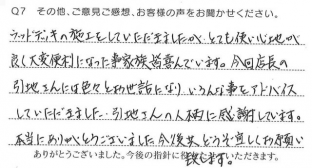 Q7 その他、ご意見ご感想、お客様の声をお聞かせください。
ウッドデッキの施工をしていただきましたが、とても使い心地が
良く大変便利になった事家族皆喜んでいます。今回店長の
引地さんには色々とお世話になりいろんな事をアドバイス
していただきました。引地さんの人柄に感謝しています。
本当にありがとうございました。今後共どうぞ宜しくお願い
致します。
ありがとうございました。今後の指針に役立たせていただきます。